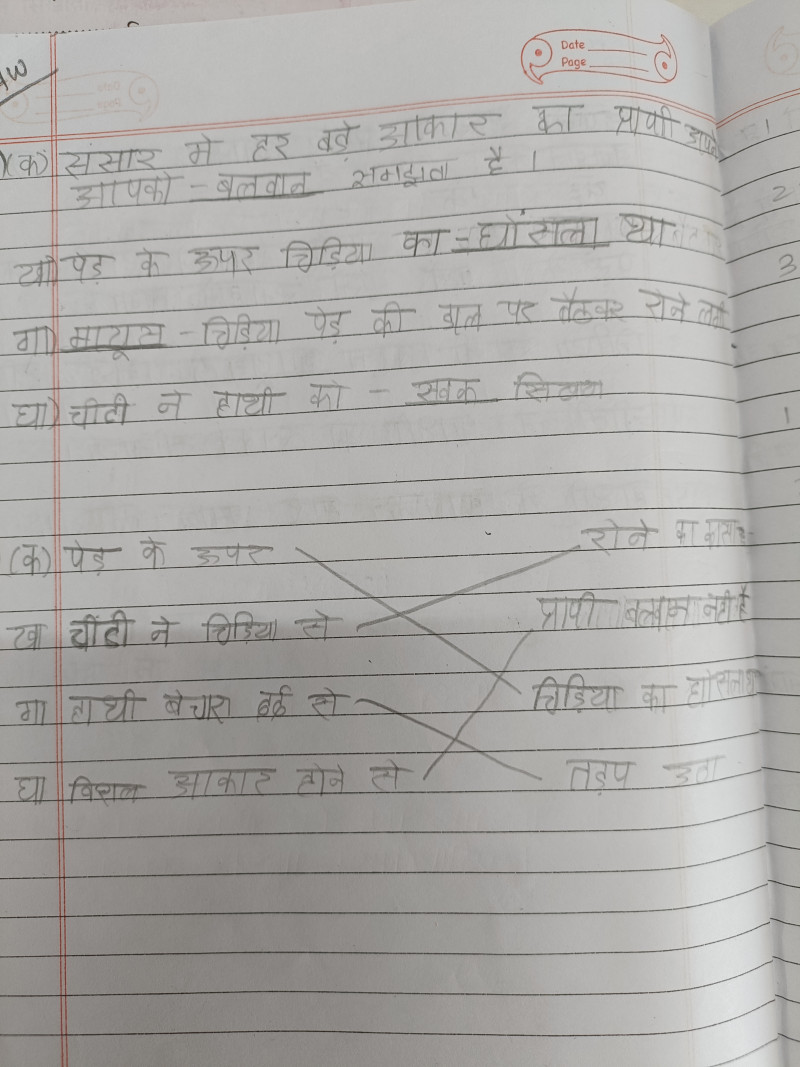 Date
Page
(क) संसार मे हर बड़े आकार का प्राणी अपने
आपको - बलवान समझता है ।
खा) पेड़ के ऊपर चिड़िया का - घोंसला था
गा) मायूस - चिड़िया पेड़ की डाल पर बैठकर रोने लगी
घा) चीटी ने हाथी को - सबक सिखाया
(क) पेड़ के ऊपर रोने का
खा चींटी ने चिड़िया से प्राणी बलवान नही है
गा हाथी बेचारा दर्द से चिड़िया का घोंसला था
घा विशाल आकार होने से तड़प उठा
1
2
3
1